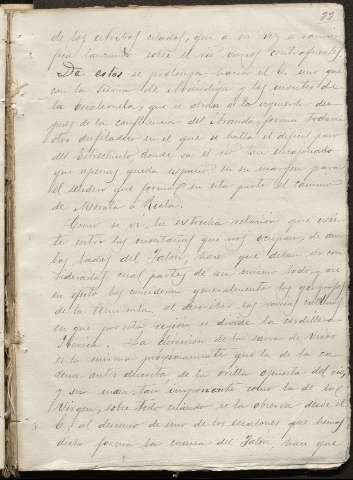 22
de los estribos citados, que a su vez a
pea lanzando sobre el rio varios contrafuertes
De estos se prolonga hacia el E. uno que
con la sierra de y los estribos de
la que se alzan a la izquierda des
pues de la confluencia del Aranda forma todavia
otro desfiladero en el que se halla el dificil paso
del Estrechuelo donde va el rio tan encajonado
que apenas queda espacio en su margen para
el sendero que forma en esta parte el camino
de Morata a Ricla.
Como se ve, la estrecha relacion que exis
te entre las montañas que nos ocupan, de am
bos lados del Jalon, hace que deban ser con
sideradas cual partes de un mismo todo, y asi
en efecto las consideran generalmente los geografos
de la Peninsula, al describir las varias
en que por esta region se divide la cordillera
Iberica. La direccion de la sierra de Vicor
es la misma proximamente que la de la ca
dena antes descrita de la orilla opuesta del rio,
y su vista, tan imponente como la de la
Virgen, sobre todo cuando se la observa desde el
E. al descenso de uno de los escalones que hemos
dicho forma la cuenca del Jalon, hace que